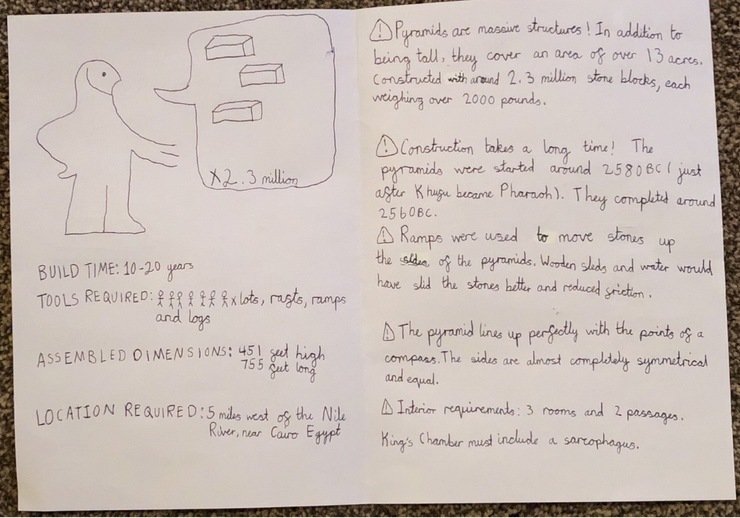 x2.3 million
BUILD TIME: 10-20 years
TOOLS REQUIRED: x lots, rafts, ramps
and logs
ASSEMBLED DIMENSIONS: 451 feet high
755 feet long
LOCATION REQUIRED: 5 miles west of the Nile
River, near Cairo Egypt
! Pyramids are massive structures! In addition to
being tall, they cover an area of over 13 acres.
Constructed with around 2.3 million stone blocks, each
weighing over 2000 pounds.
! Construction takes a long time! The
pyramids were started around 2580BC (just
after Khufu became Pharaoh). They completed around
2560BC.
! Ramps were used to move stones up
the sides of the pyramids. Wooden sleds and water would
have slid the stones better and reduced friction.
! The pyramid lines up perfectly with the points of a
compass. The sides are almost completely symmetrical
and equal.
! Interior requirements: 3 rooms and 2 passages.
King's Chamber must include a sarcophagus.